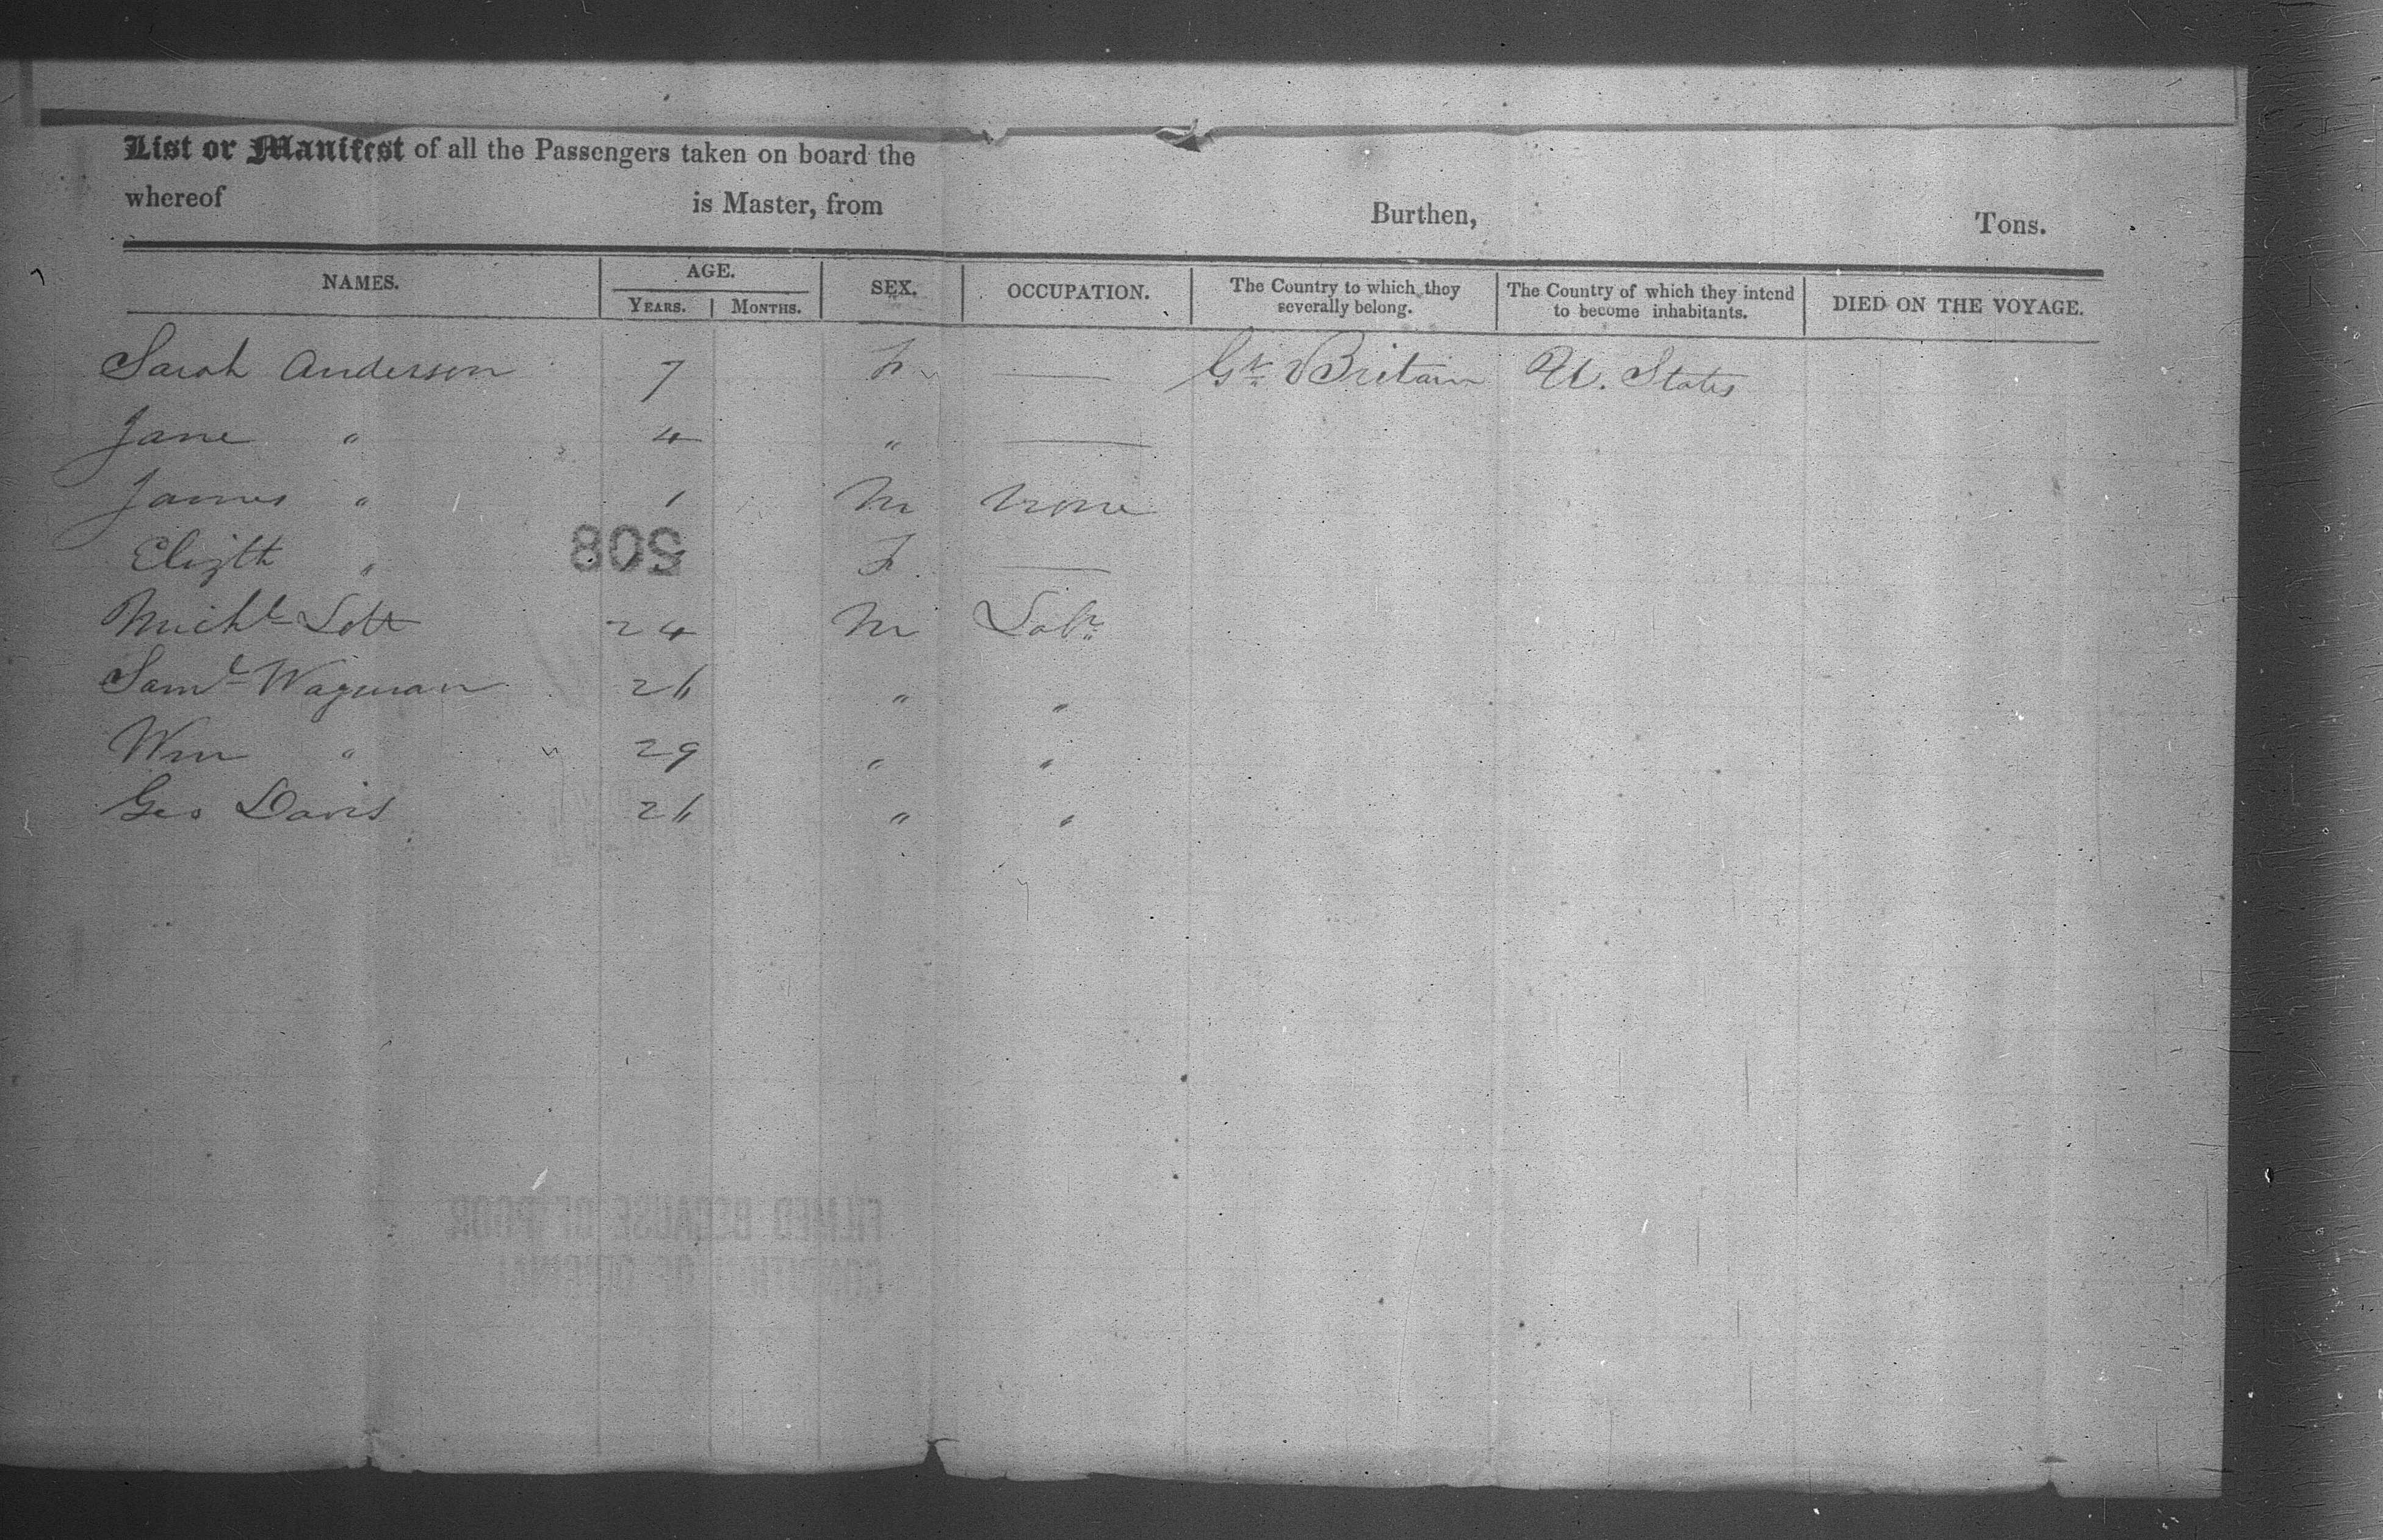 List or Manifest of all the Passengers taken on board the
whereof is Master, from Burthen, Tons.
NAMES. AGE. YEARS. MONTHS. SEX. OCCUPATION. The Country to which they severally belong. The Country of which they intend to become inhabitants. DIED ON THE VOYAGE.
Sarah Anderson 7 F — Gt Britain U. States
Jane " 4 " —
James " 1 M None
Elizth " F —
508
Michl Lott 24 M Labr
Saml Wagman 26 " "
Wm " 29 " "
Geo Davis 26 " "
FILMED BECAUSE OF POOR
CONDITION OF ORIGINAL